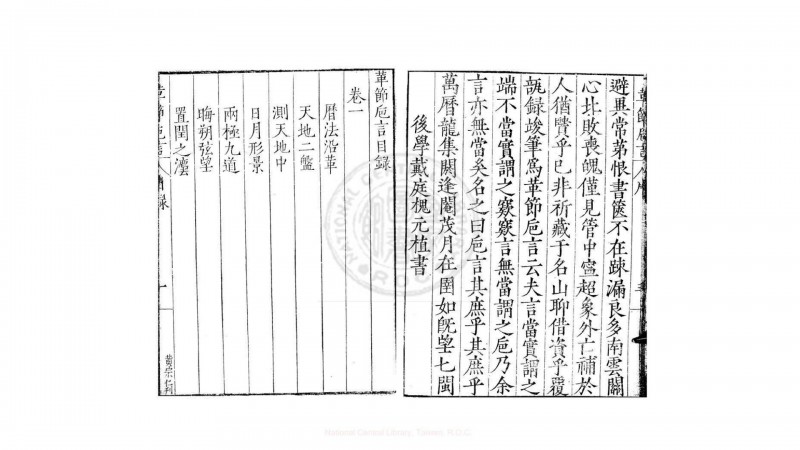 避異常茅恨書篋不在疎漏良多南雲關
心北敗喪魄僅見管中寧超象外亡補於
人猶贅乎已非祈藏于名山聊借資乎覆
瓿録竣筆爲革節巵言云夫言當實謂之
端不當實謂之窾窾言無當謂之巵乃余
言亦無當奚名之曰巵言其庶乎其庶乎
萬曆龍集閼逢閹茂月在圉如旣望七閩
後學戴庭槐元植書
革節巵言
目録
一
革節巵言目録
卷一
曆法沿革
天地二盤
測天地中
日月形景
兩極九道
晦朔弦望
置閏之灋
National Central Library, Taiwan, R.O.C.